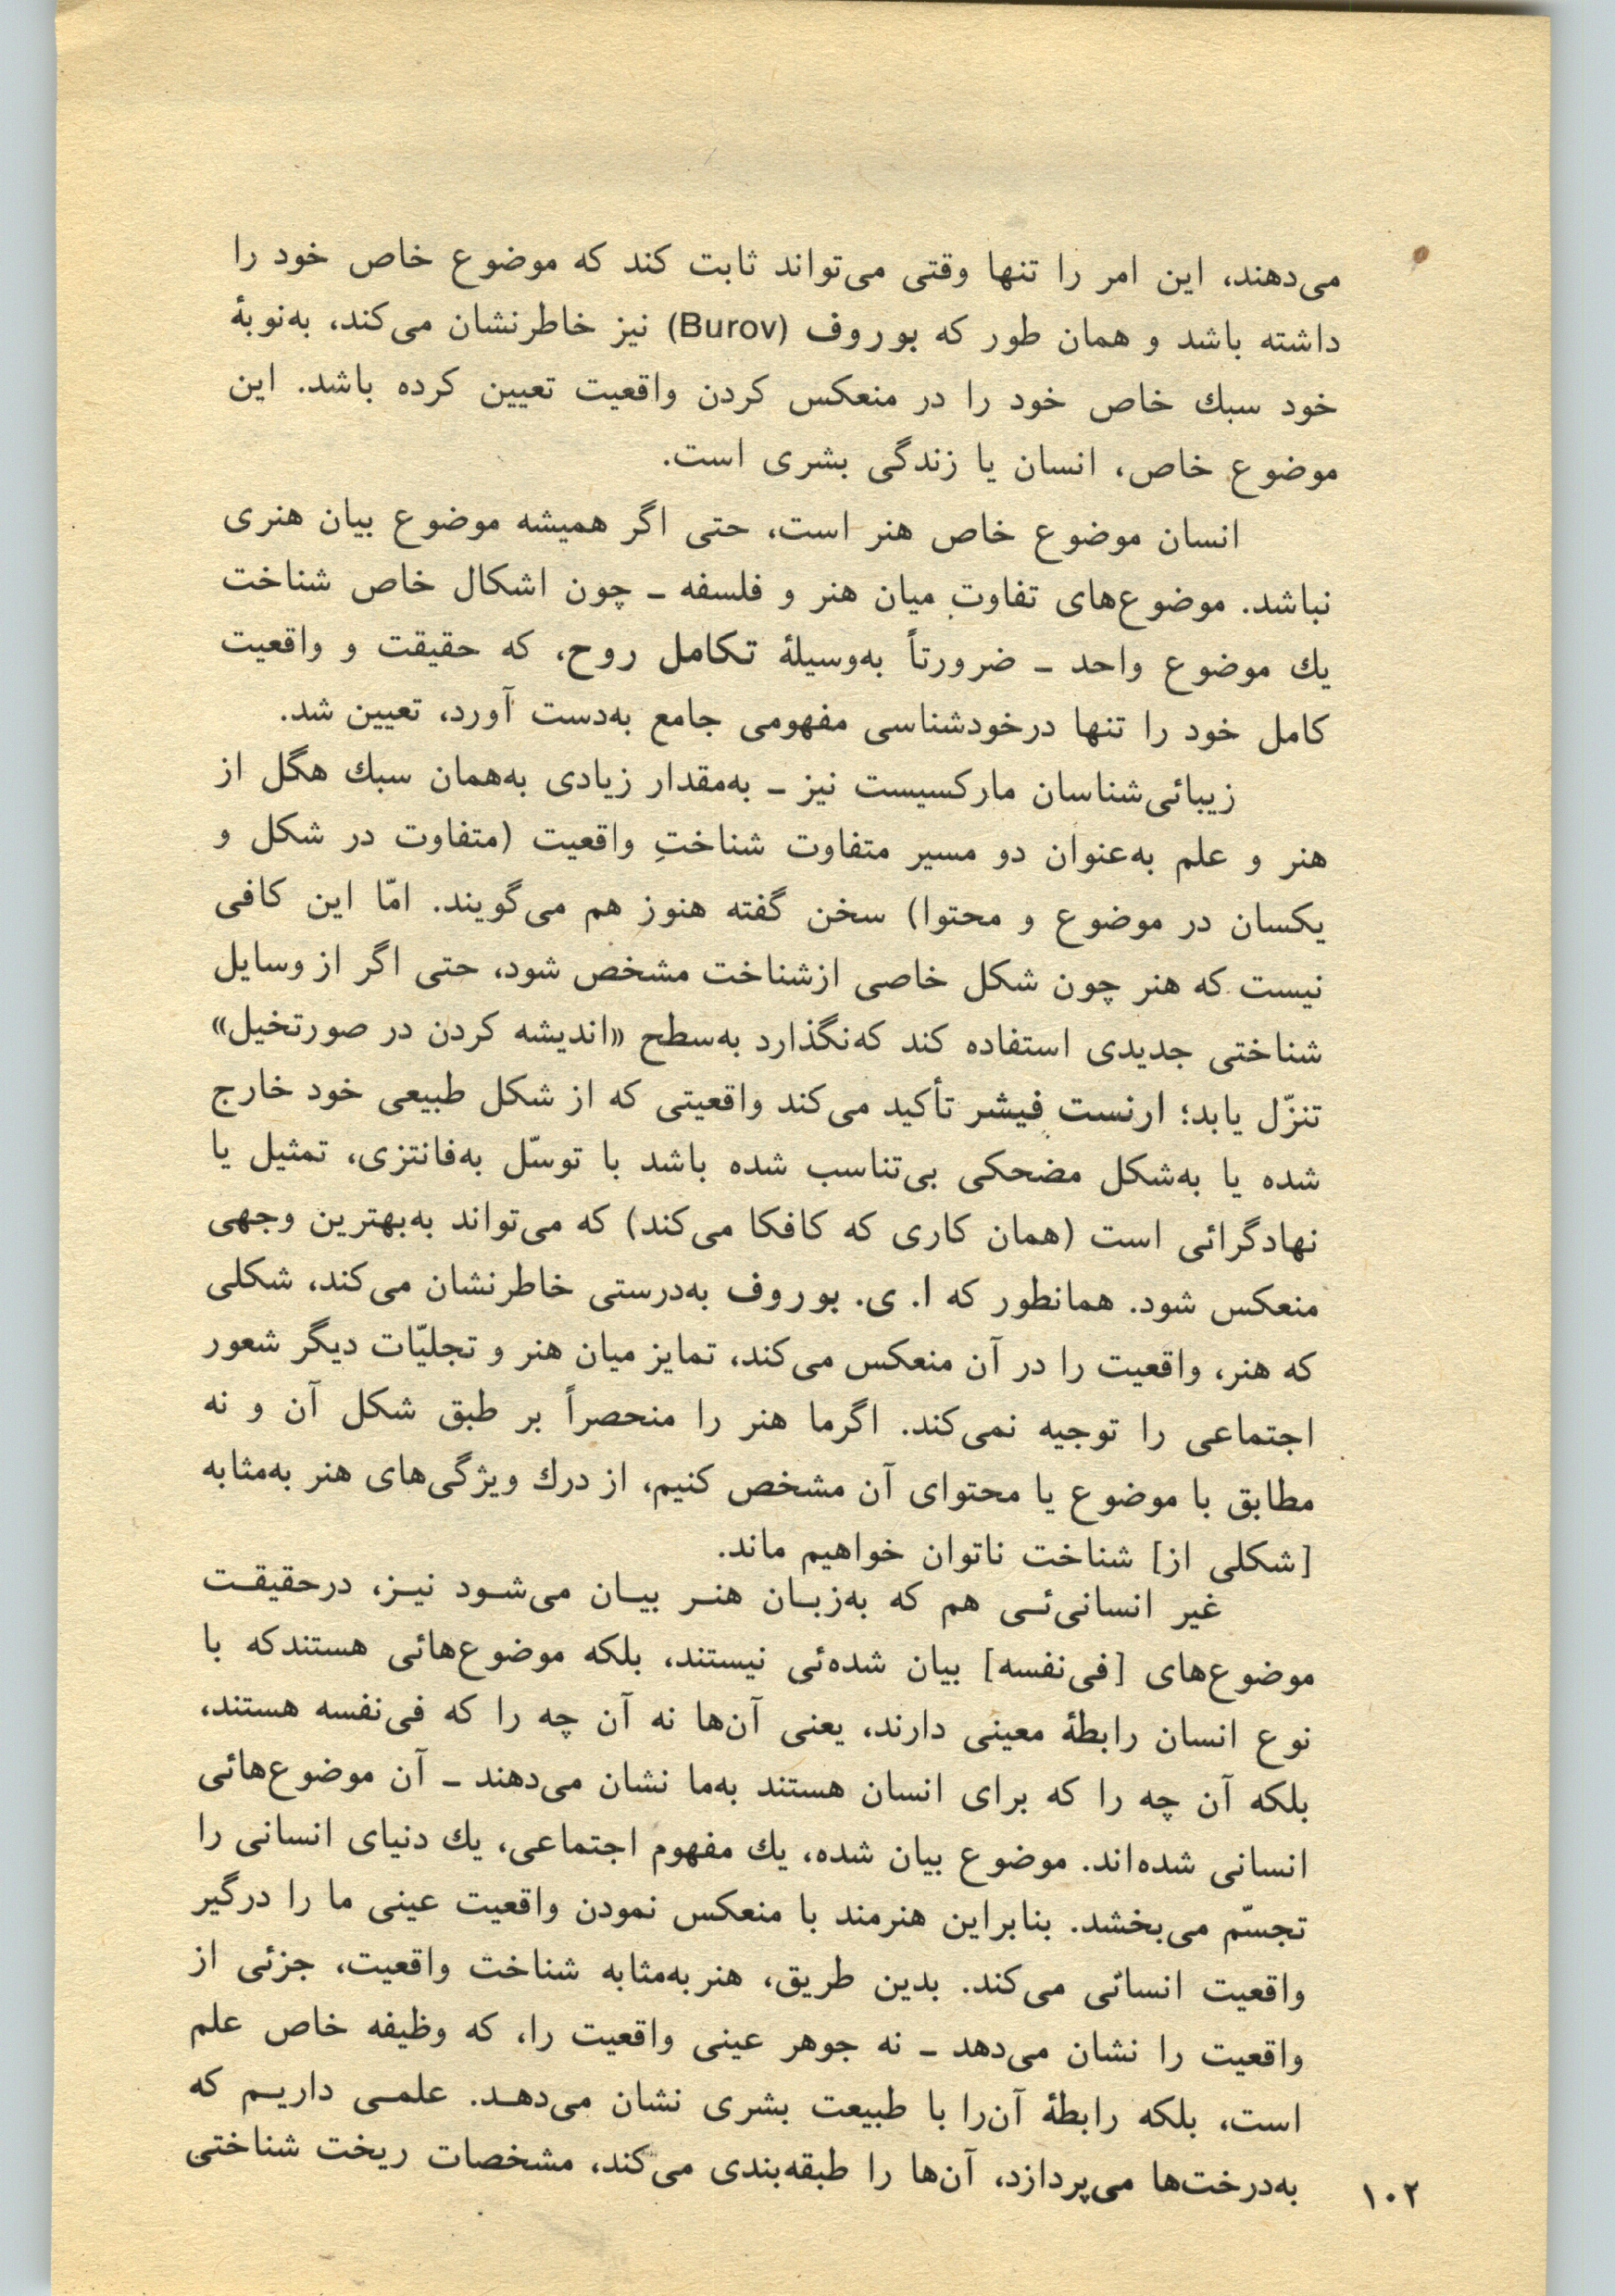 می‌دهند، این امر را تنها وقتی می‌تواند ثابت کند که موضوع خاص خود را
داشته باشد و همان طور که بوروف (Burov) نیز خاطرنشان می‌کند، به‌نوبهٔ
خود سبك خاص خود را در منعکس کردن واقعیت تعیین کرده باشد. این
موضوع خاص، انسان یا زندگی بشری است.
انسان موضوع خاص هنر است، حتی اگر همیشه موضوع بیان هنری
نباشد. موضوع‌های تفاوت میان هنر و فلسفه ـ چون اشکال خاص شناخت
یك موضوع واحد ـ ضرورتاً به‌وسیلهٔ تکامل روح، که حقیقت و واقعیت
کامل خود را تنها درخودشناسی مفهومی جامع به‌دست آورد، تعیین شد.
زیبائی‌شناسان مارکسیست نیز ـ به‌مقدار زیادی به‌همان سبك هگل از
هنر و علم به‌عنوان دو مسیر متفاوت شناختِ واقعیت (متفاوت در شکل و
یکسان در موضوع و محتوا) سخن گفته هنوز هم می‌گویند. امّا این کافی
نیست که هنر چون شکل خاصی ازشناخت مشخص شود، حتی اگر از وسایل
شناختی جدیدی استفاده کند که‌نگذارد به‌سطح «اندیشه کردن در صورتخیل»
تنزّل یابد؛ ارنست فیشر تأکید می‌کند واقعیتی که از شکل طبیعی خود خارج
شده یا به‌شکل مضحکی بی‌تناسب شده باشد با توسّل به‌فانتزی، تمثیل یا
نهادگرائی است (همان کاری که کافکا می‌کند) که می‌تواند به‌بهترین وجهی
منعکس شود. همانطور که ا. ی. بوروف به‌درستی خاطرنشان می‌کند، شکلی
که هنر، واقعیت را در آن منعکس می‌کند، تمایز میان هنر و تجلیّات دیگر شعور
اجتماعی را توجیه نمی‌کند. اگرما هنر را منحصراً بر طبق شکل آن و نه
مطابق با موضوع یا محتوای آن مشخص کنیم، از درك ویژگی‌های هنر به‌مثابه
[شکلی از] شناخت ناتوان خواهیم ماند.
غیر انسانی‌ئی هم که به‌زبان هنر بیان می‌شود نیز، درحقیقت
موضوع‌های [فی‌نفسه] بیان شده‌ئی نیستند، بلکه موضوع‌هائی هستندکه با
نوع انسان رابطهٔ معینی دارند، یعنی آن‌ها نه آن چه را که فی‌نفسه هستند،
بلکه آن چه را که برای انسان هستند به‌ما نشان می‌دهند ـ آن موضوع‌هائی
انسانی شده‌اند. موضوع بیان شده، یك مفهوم اجتماعی، یك دنیای انسانی را
تجسّم می‌بخشد. بنابراین هنرمند با منعکس نمودن واقعیت عینی ما را درگیر
واقعیت انسانی می‌کند. بدین طریق، هنر به‌مثابه شناخت واقعیت، جزئی از
واقعیت را نشان می‌دهد ـ نه جوهر عینی واقعیت را، که وظیفه خاص علم
است، بلکه رابطهٔ آن‌را با طبیعت بشری نشان می‌دهد. علمی داریم که
به‌درخت‌ها می‌پردازد، آن‌ها را طبقه‌بندی می‌کند، مشخصات ریخت شناختی
۱۰۲